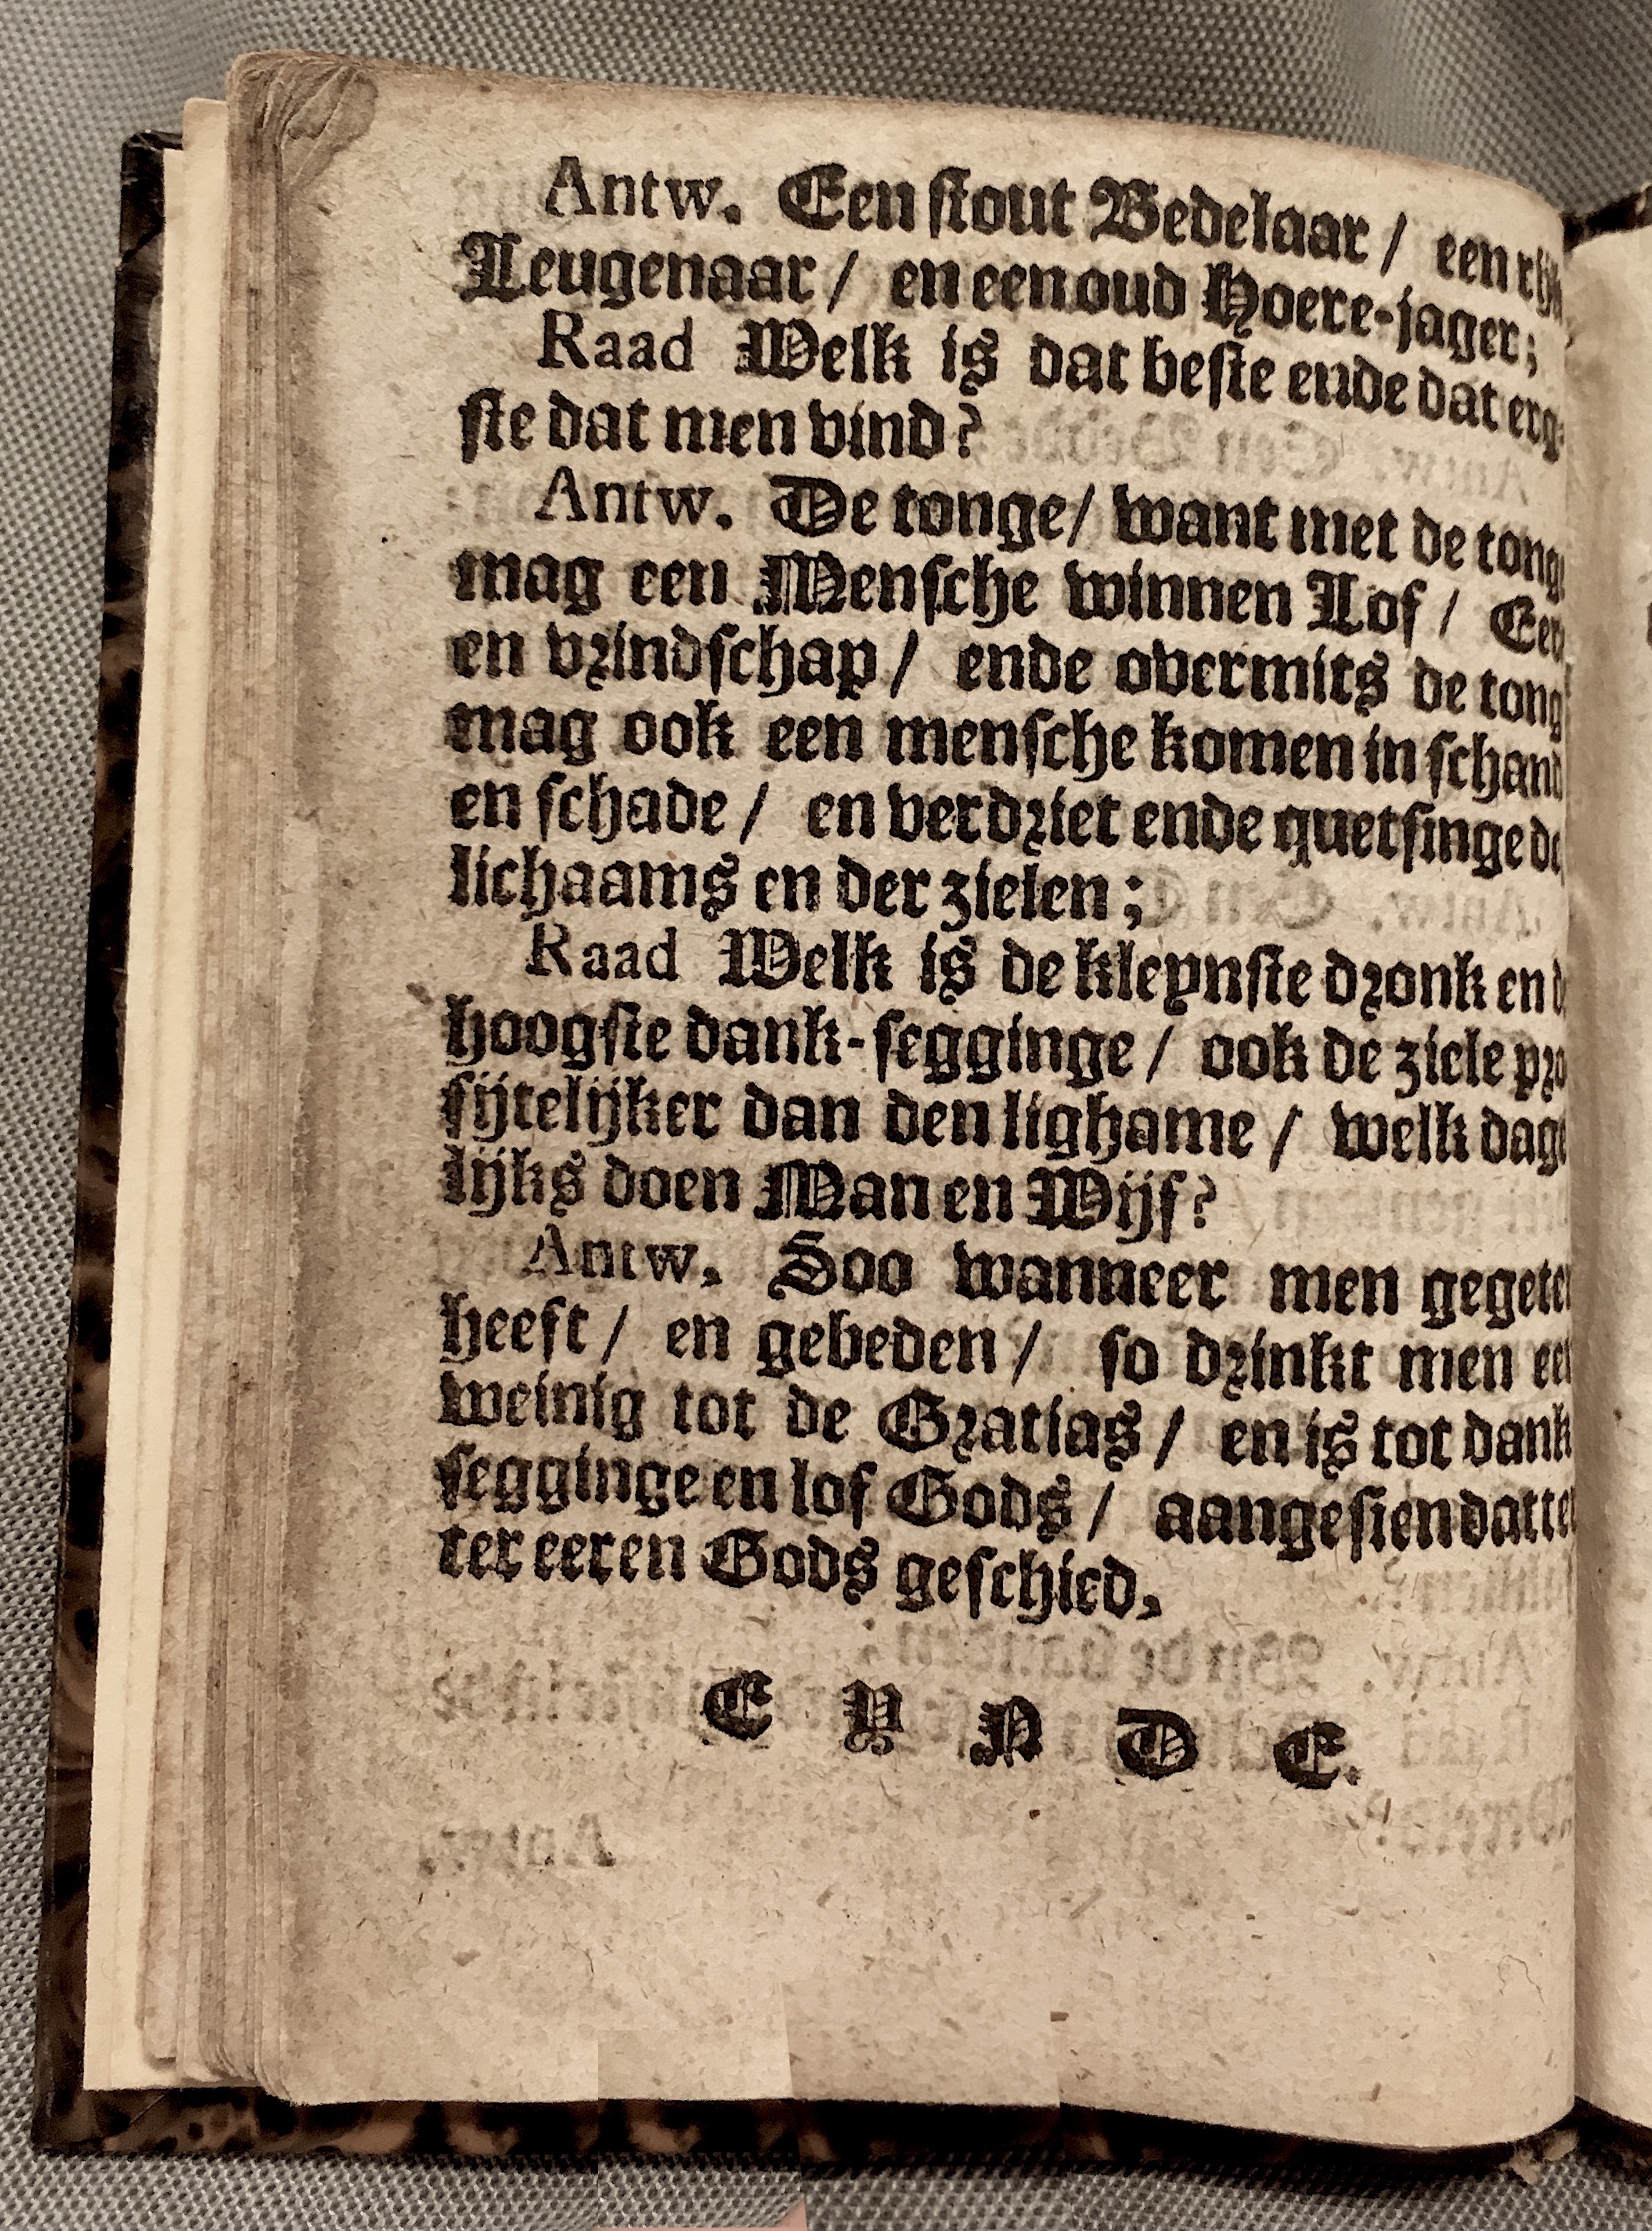 Antw. Een stout Bedelaar / een rijk
Leugenaar / en een oud Hoere-jager;
Raad Welk is dat beste ende dat erg-
ste dat men vind?
Antw. De tonge / want met de tong
mag een Mensche winnen Lof / Eer
en vrindschap / ende overmits de tong
mag ook een mensche komen in schand
en schade / en verdriet ende quetsinge de
lichaams en der zielen;
Raad Welk is de kleynste dronk en d
hoogste dank-segginge / ook de ziele pro
fijtelijker dan den lighame / welk dage
lijks doen Man en Wijf?
Antw. Soo wanneer men gegeten
heeft / en gebeden / so drinkt men een
weinig tot de Gratias / en is tot dank
segginge en lof Gods / aangesien datter
ter eeren Gods geschied,
EYNDE.